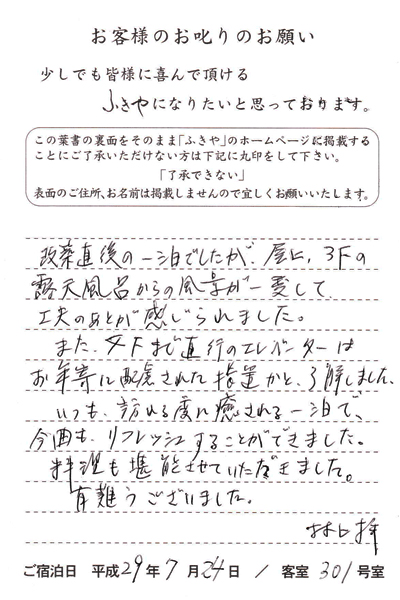 お客様のお叱りのお願い
少しでも皆様に喜んで頂ける
ふきやになりたいと思っております。
この葉書の裏面をそのまま「ふきや」のホームページに掲載する
ことにご了承いただけない方は下記に丸印をして下さい。
「了承できない」
表面のご住所、お名前は掲載しませんので宜しくお願いいたします。
改築直後の一泊でしたが、屋上、3Fの
露天風呂からの風景が一変して
工夫のあとが感じられました。
また、4Fまで直行のエレベーターは
お年寄に配慮された措置かと、了解しました。
いつも、訪れる度に癒される一泊で、
今回も、リフレッシュすることができました。
料理も堪能させていただきました。
有難うございました。
ご宿泊日 平成29年7月24日 / 客室 301号室